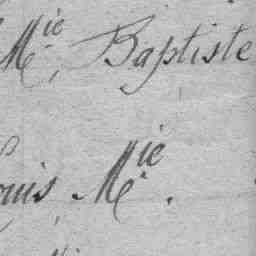 Mie, Baptiste
ouis, Mie.